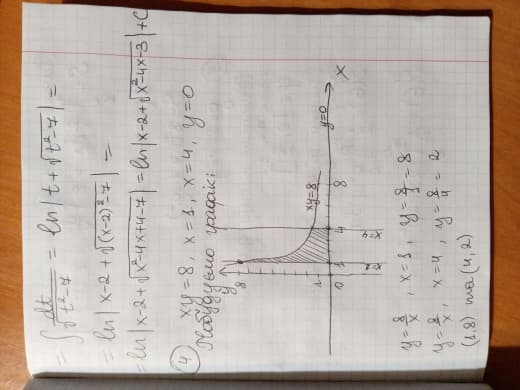 = ∫ dt/√(t²-7) = ln|t + √(t²-7)| =
= ln|x-2 + √((x-2)²-7)| =
= ln|x-2 + √(x²-4x+4-7)| = ln|x-2 + √(x²-4x-3)| + C
4 xy=8, x=1, x=4, y=0
Побудуємо графік:
y
8
1
xy=8
y=0
0 1 4 8 x
x=1
x=4
y = 8/x, x=1, y = 8/1 = 8
y = 8/x, x=4, y = 8/4 = 2
(1,8) та (4,2)